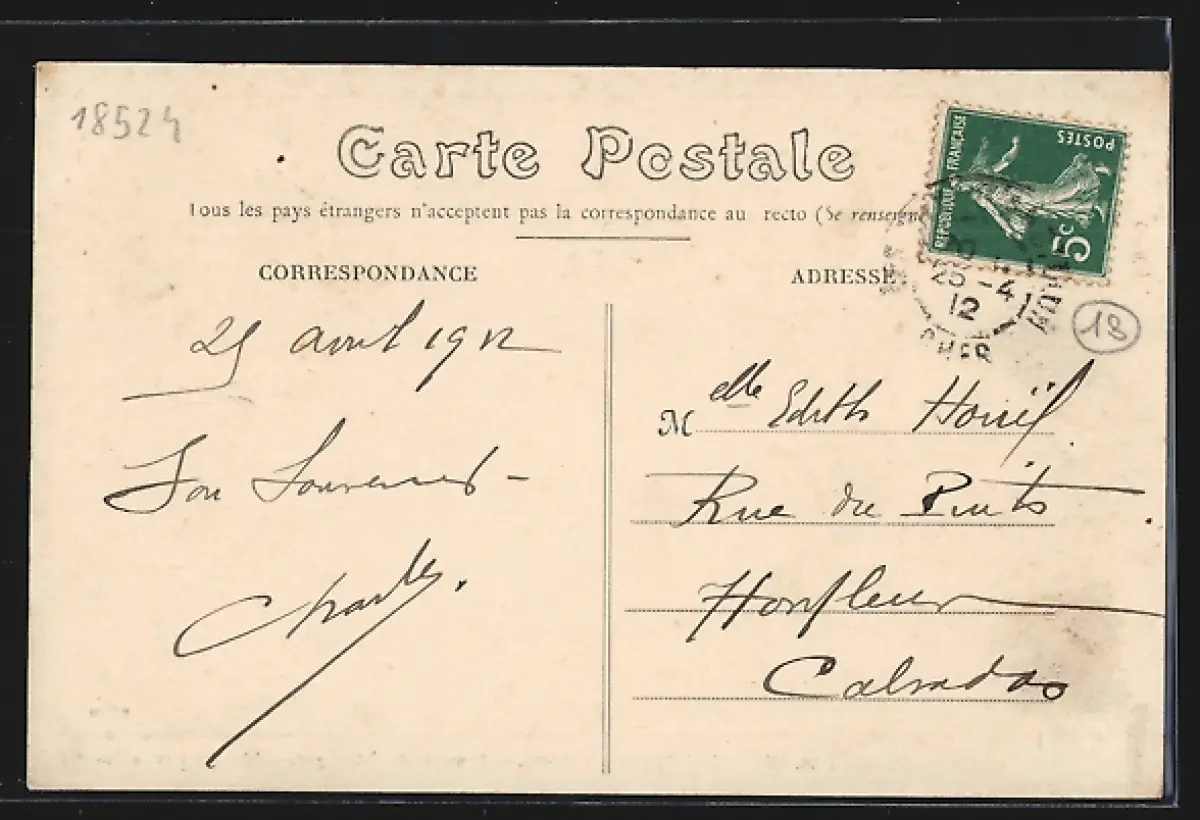 18524
Carte Postale
Tous les pays étrangers n'acceptent pas la correspondance au recto (Se renseign
CORRESPONDANCE
ADRESSE
REPUBLIQUE FRANÇAISE
POSTES
5c
25 -4
12
CHER
18
25 avril 1912
Son Souvenir -
Charles.
Melle Edith Houël
Rue du Puits
Honfleur
Calvados